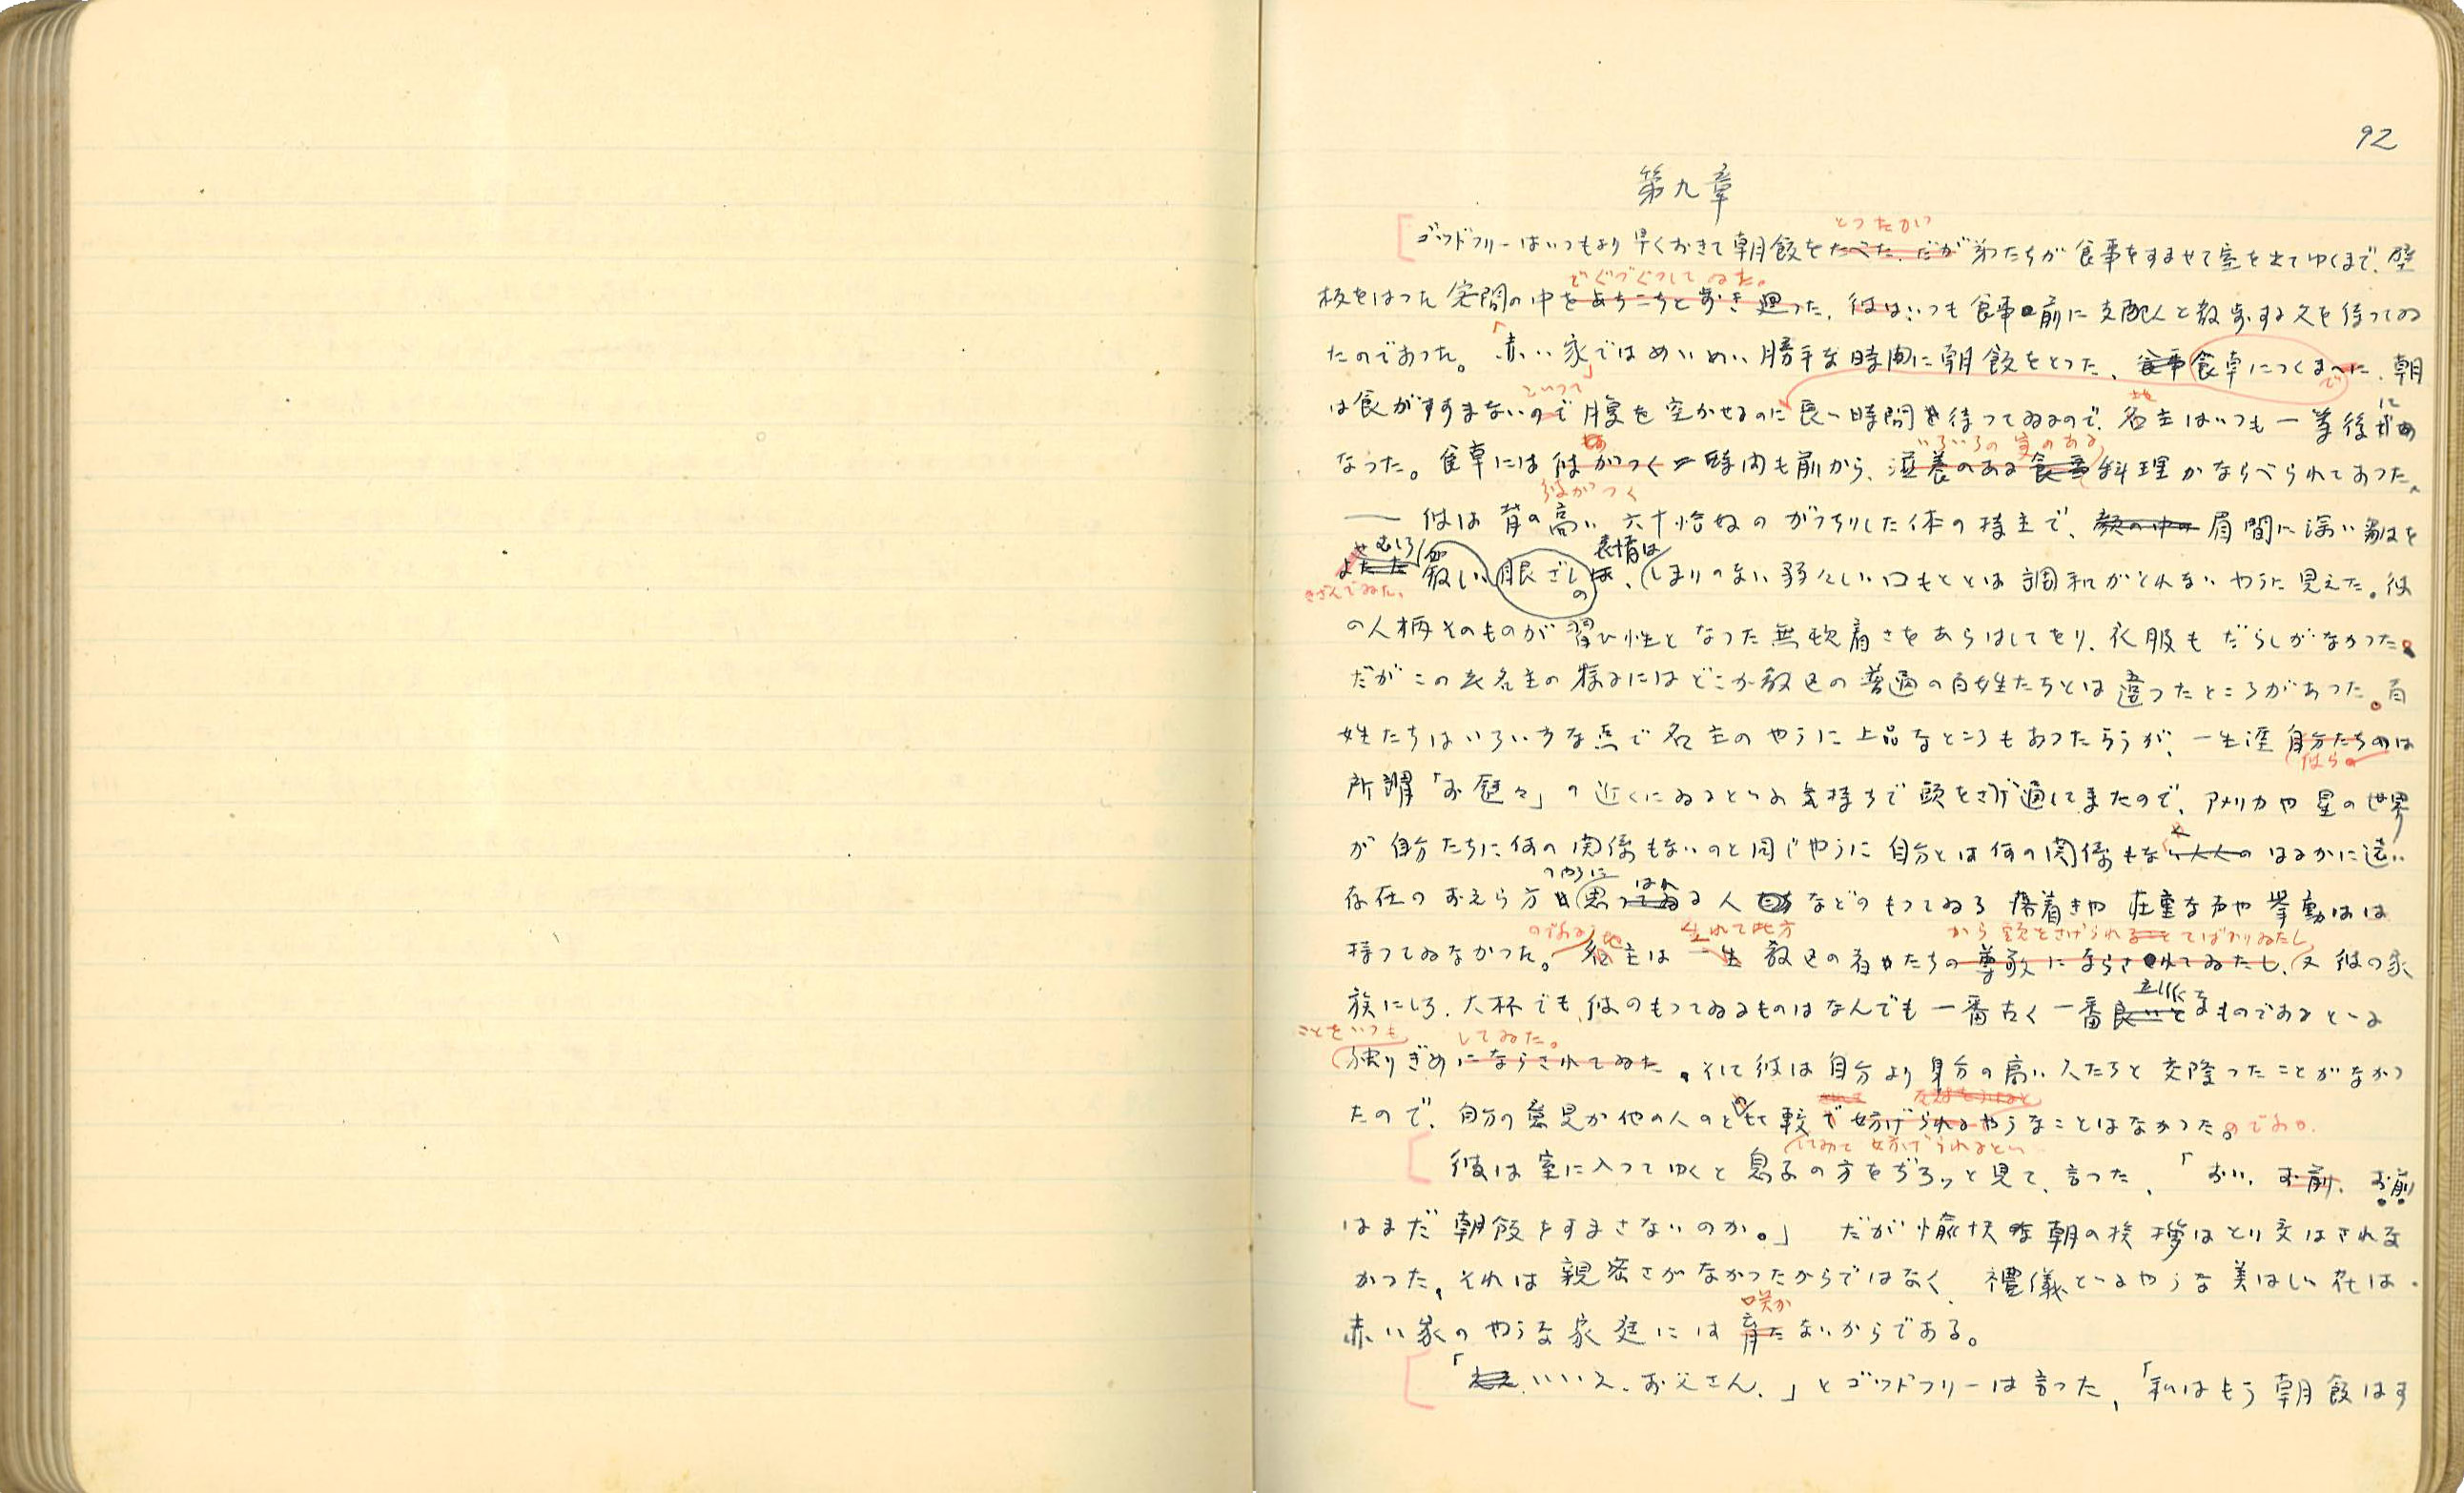 92
第九章
とつたが
ゴッドフリーはいつもより早くおきて朝飯をたべた、だが弟たちが食事をすませて室を出てゆくまで、壁
でぐづぐづしてゐた。
板をはつた客間の中をあちこちと歩き廻つた、彼はいつも食事前に支配人と散歩する父を待つてゐ
たのであつた。「赤い家」ではめいめい勝手な時間に朝飯をとつた、食事食卓につくまで、朝
といつて
は食がすすまないので腹を空かせるのに長い時間を待つてゐるので、名主はいつも一等後に
いろいろの実のある
なつた。食卓には彼がつく一時間も前から、滋養のある食事料理がならべられてあつた、
彼がつく
── 彼は背の高い六十恰好のがつちりした体の持主で、顔の中の眉間に深い皺を
やむしろ 表情は
よせた厳しい眼ざしの、しまりのない弱々しい口もととは調和がとれないやうに見えた。彼
きざんでゐた。
の人柄そのものが習ひ性となつた無頓着さをあらはしてをり、衣服もだらしがなかつた。
だがこの老名主の様子にはどこか教区の普通の百姓たちとは違つたところがあつた。百
姓たちはいろいろな点で名主のやうに上品なところもあつたらうが、一生涯自分たちのは
彼らの
所謂「お歴々」の近くにゐるといふ気持ちで頭をさげ通してきたので、アメリカや星の世界
が自分たちに何の関係もないのと同じやうに自分とは何の関係もない人人のはるかに遠い
のやうに はれ
存在のおえら方思つてゐる人などのもつてゐる落着きや荘重な声や挙動は
のである 生れて此方 から頭をさげられることてばかりゐたし、
持つてゐなかつた。名主は一生教区の者たちの尊敬にならされてゐたし、又彼の家
立派な
族にしろ、大杯でも、彼のもつてゐるものはなんでも一番古く一番良いとものであるといふ
ことをいつも してゐた。
独りぎめにならされてゐた。そして彼は自分より身分の高い人たちと交際つたことがなかつ
たので、自分の意見が他の人のと比較で妨げられるやうなことはなかつた。のである。
してみて妨げられるとい
彼は室に入つてゆくと息子の方をぢろッと見て、言つた、「おい、お前、お前
はまだ朝飯をすまさないのか。」 だが愉快な朝の挨拶はとり交はされな
かつた。それは親密さがなかつたからではなく、禮儀といふやうな美はしい花は、
咲か
赤い家のやうな家庭には育たないからである。
「いいえ、お父さん、」とゴッドフリーは言つた、「私はもう朝飯はす